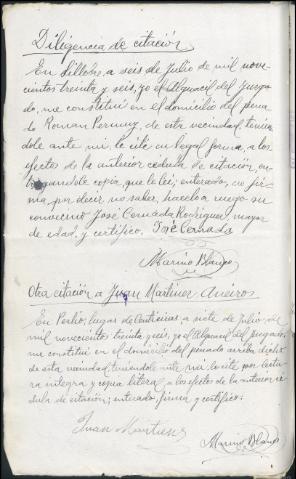 Diligencia de citación
En Sillobre, a seis de Julio de mil nove-
cientos treinta y seis, yo el Alguacil del Juzga-
do, me constituí en el domicilio del pena-
do Roman Permuy, de esta vecindad, tenien-
dole ante mi, le cite en legal forma, a los
efectos de la anterior cedula de citación, en-
tregandole copia, que le lei; enterado, no fir-
ma por decir no saber, hacelo a ruego su
convecino José Cernada Rodriguez, mayor
de edad, y certifico. José Cernada
Marino Blanco
Otra citación a Juan Martinez Aneiros
En Perlio, lugar de a siete de Julio de
mil novecientos treinta y seis, yo el Alguacil del Juzgado,
me constituí en el domicilio del penado arriba dicho
de esta vecindad, teniendole ante mi le cite por lectu-
ra integra y copia literal a los efectos de la anterior ce-
dula de citación; enterado, firma y certifico:
Juan Martinez
Marino Blanco